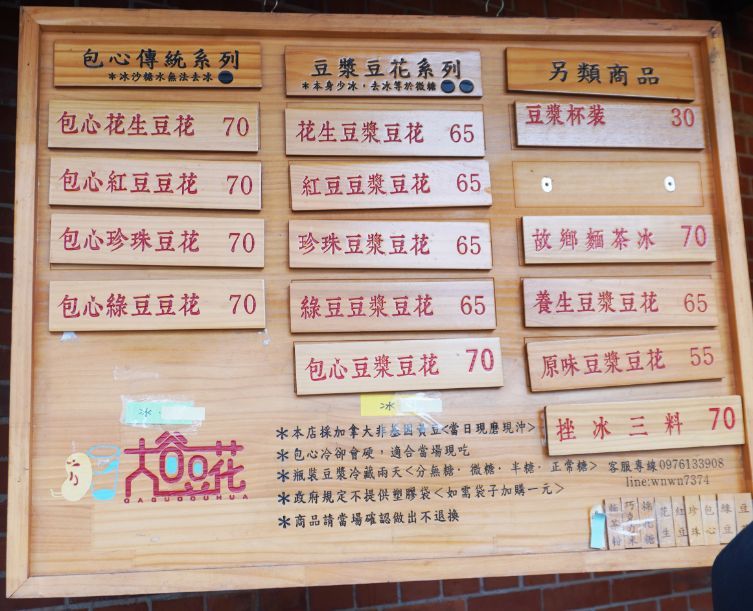 包心傳統系列
*冰沙糖水無法去冰
包心花生豆花 70
包心紅豆豆花 70
包心珍珠豆花 70
包心綠豆豆花 70
豆漿豆花系列
*本身少冰,去冰等於微糖
花生豆漿豆花 65
紅豆豆漿豆花 65
珍珠豆漿豆花 65
綠豆豆漿豆花 65
包心豆漿豆花 70
另類商品
豆漿杯裝 30
故鄉麵茶冰 70
養生豆漿豆花 65
原味豆漿豆花 55
挫冰三料 70
冰
冰
大谷豆花
DAGUDOUHUA
*本店採加拿大非基因黃豆<當日現磨現沖>
*包心冷卻會硬,適合當場現吃
*瓶裝豆漿冷藏兩天<分無糖.微糖.半糖.正常糖> 客服專線0976133908
line:wnwn7374
*政府規定不提供塑膠袋<如需袋子加購一元>
*商品請當場確認做出不退換
麵茶粉
巧克力米
棉花糖
花生
紅豆
珍珠
包心
綠豆
豆